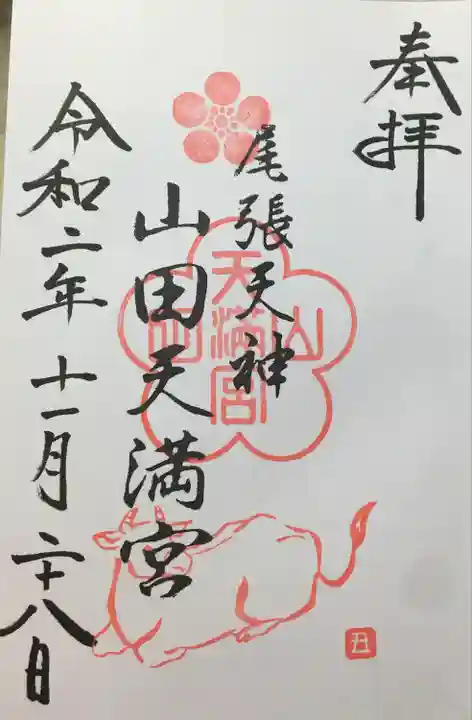 奉拝
尾張天神
山田天満宮
令和二年十一月二十八日
天満宮
山田
丑